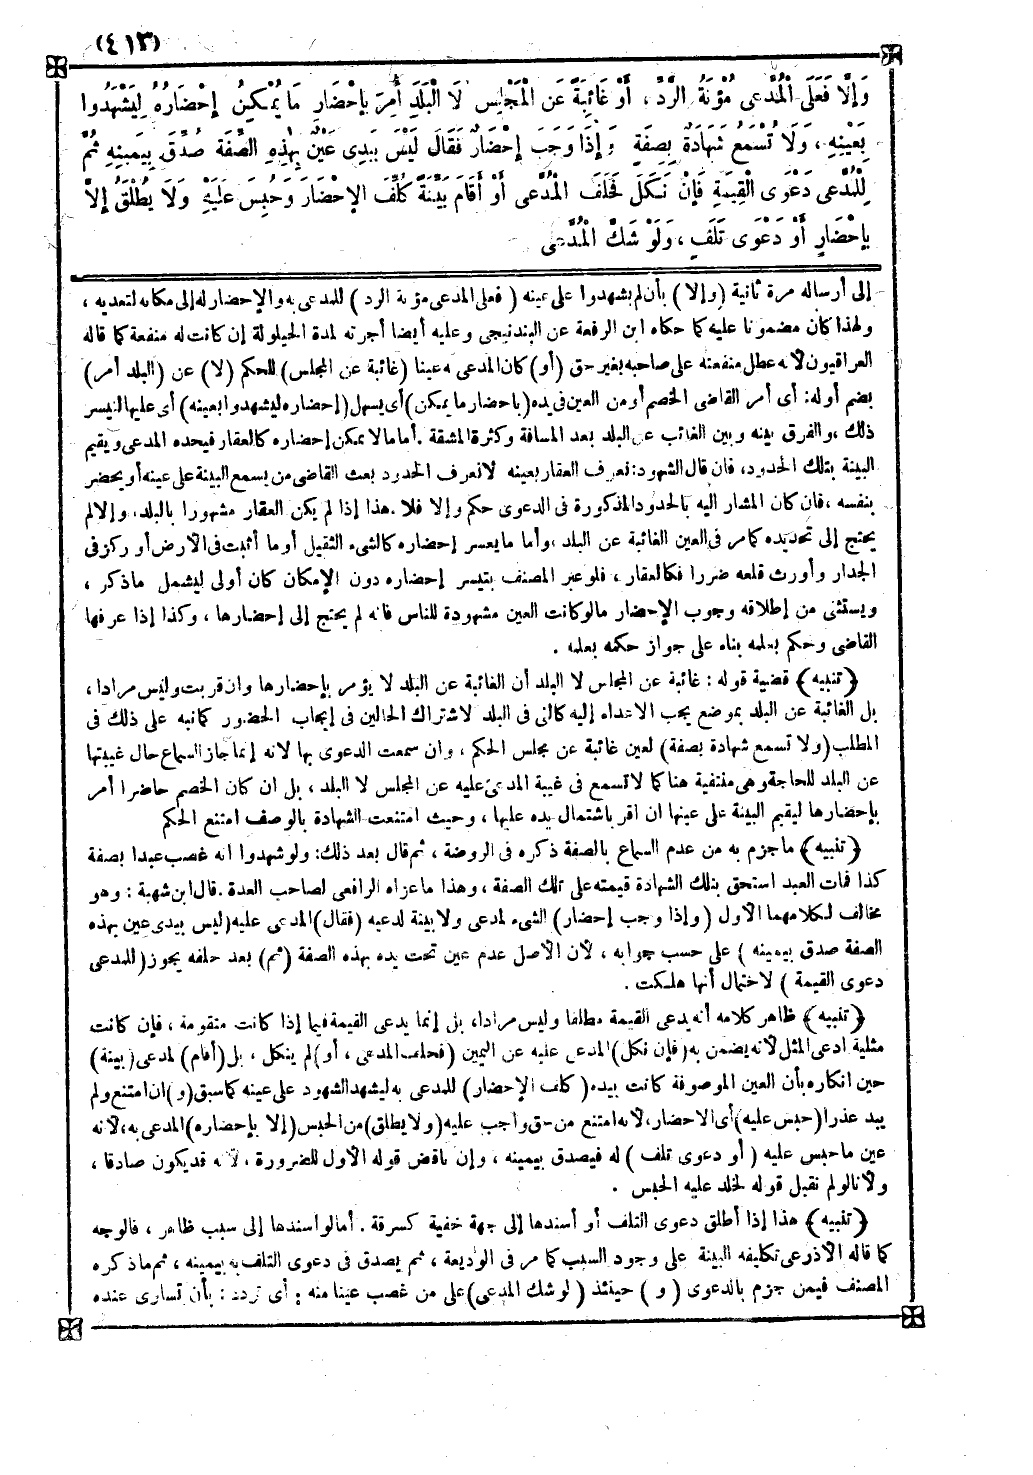 (٤١٣)
وَإِلَّا فَعَلَى الْمُدَّعِى مُؤْنَةُ الرَّدِّ ، أَوْ غَائِبَةً عَنِ الْمَجْلِسِ لَا الْبَلَدِ أُمِرَ بِإِحْضَارِ مَا يُمْكِنُ إِحْضَارُهُ لِيَشْهَدُوا
بِعَيْنِهِ ، وَلَا تُسْمَعُ شَهَادَةٌ بِصِفَةٍ وَإِذَا وَجَبَ إِحْضَارٌ فَقَالَ لَيْسَ بِيَدِى عَيْنٌ بِهٰذِهِ الصِّفَةِ صُدِّقَ بِيَمِينِهِ ثُمَّ
لِلْمُدَّعِى دَعْوَى الْقِيمَةِ فَإِنْ نَكَلَ فَحَلَفَ الْمُدَّعِى أَوْ أَقَامَ بَيِّنَةً كُلِّفَ الإِحْضَارَ وَحُبِسَ عَلَيْهِ وَلَا يُطْلَقُ إِلَّا
بِإِحْضَارٍ أَوْ دَعْوَى تَلَفٍ ، وَلَوْ شَكَّ الْمُدَّعِى
إلى أرساله مرة ثانية (وإلا) بأن لم يشهدوا على عينه (فعلى المدعى مؤنة الرد) للمدعى به والإحضار له إلى مكانه لتعديه ،
ولهذا كان مضمونا عليه كما حكاه ابن الرفعة عن البندنيجى وعليه أيضا أجرته لمدة الحيلولة إن كانت له منفعة كما قاله
العراقيون لأنه عطل منفعته على صاحبه بغير حق (أو) كان المدعى به عينا (غائبة عن المجلس) للحكم (لا) عن (البلد أمر)
بضم أوله : أى أمر القاضى الخصم أو من العين فى يده (باحضار ما يمكن) أى يسهل (إحضاره ليشهدوا بعينه) أى عليها لتيسر
ذلك ، والفرق بينه وبين الغائب عن البلد بعد المسافة وكثرة المشقة . أما ما لا يمكن إحضاره كالعقار فيحده المدعى ويقيم
البينة بتلك الحدود، فان قال الشهود : نعرف العقار بعينه لا نعرف الحدود بعث القاضى من يسمع البينة على عينه أو يحضر
بنفسه ، فان كان المشار اليه بالحدود المذكورة فى الدعوى حكم وإلا فلا . هذا إذا لم يكن العقار مشهورا بالبلد، وإلا لم
يحتج إلى تحديده كما مر فى العين الغائبة عن البلد ، وأما ما يعسر إحضاره كالشىء الثقيل أو ما أثبت فى الأرض أو ركز فى
الجدار وأورث قلعه ضررا فكالعقار ، فلو عبر المصنف بتيسر إحضاره دون الإمكان كان أولى ليشمل ما ذكر ،
ويستثنى من إطلاقه وجوب الإحضار مالو كانت العين مشهودة للناس فانه لم يحتج إلى إحضارها ، وكذا إذا عرفها
القاضى وحكم بعلمه بناء على جواز حكمه بعلمه .
﴿تنبيه﴾ قضية قوله : غائبة عن المجلس لا البلد أن الغائبة عن البلد لا يؤمر بإحضارها وان قربت وليس مرادا ،
بل الغائبة عن البلد بموضع يجب الاعداء إليه كالتى فى البلد لاشتراك الحالين فى إيجاب الحضور كما نبه على ذلك فى
المطلب (ولا تسمع شهادة بصفة) لعين غائبة عن مجلس الحكم ، وان سمعت الدعوى بها لأنه إنما جاز السماع حال غيبتها
عن البلد للحاجة وهى منتفية هنا كما لا تسمع فى غيبة المدعى عليه عن المجلس لا البلد ، بل ان كان الخصم حاضرا أمر
بإحضارها ليقيم البينة على عينها ان اقر باشتمال يده عليها ، وحيث امتنعت الشهادة بالوصف امتنع الحكم
﴿تنبيه﴾ ما جزم به من عدم السماع بالصفة ذكره فى الروضة ، ثم قال بعد ذلك : ولو شهدوا انه غصب عبدا بصفة
كذا فمات العبد استحق بتلك الشهادة قيمته على تلك الصفة ، وهذا ما عزاه الرافعى لصاحب العدة . قال ابن شهبة : وهو
مخالف لكلامهما الأول (وإذا وجب إحضار) الشىء لمدعى ولا بينة لمدعيه (فقال) المدعى عليه (ليس بيدى عين بهذه
الصفة صدق بيمينه) على حسب جوابه ، لأن الأصل عدم عين تحت يده بهذه الصفة (ثم) بعد حلفه يجوز (للمدعى
دعوى القيمة) لاحتمال أنها هلكت .
﴿تنبيه﴾ ظاهر كلامه أنه يدعى القيمة مطلقا وليس مرادا، بل إنما يدعى القيمة فيما إذا كانت متقومة ، فإن كانت
مثلية ادعى المثل لأنه يضمن به (فإن نكل) المدعى عليه عن اليمين (فحلف المدعى ، أو) لم ينكل ، بل (أقام) لمدعى (بينة)
حين انكاره بأن العين الموصوفة كانت بيده (كلف الإحضار) للمدعى به ليشهد الشهود على عينه كما سبق (و) ان امتنع ولم
يبد عذرا (حبس عليه) أى الاحضار، لأنه امتنع من حق واجب عليه (ولا يطلق) من الحبس (إلا بإحضاره) المدعى به، لأنه
عين ما حبس عليه (أو دعوى تلف) له فيصدق بيمينه ، وإن ناقض قوله الأول للضرورة ، لأنه قد يكون صادقا ،
ولأنا لو لم نقبل قوله لخلد عليه الحبس .
﴿تنبيه﴾ هذا إذا أطلق دعوى التلف أو أسندها إلى جهة خفية كسرقة . أما لو أسندها إلى سبب ظاهر ، فالوجه
كما قاله الأذرعى تكليفه البينة على وجود السبب كما مر فى الوديعة ، ثم يصدق فى دعوى التلف به بيمينه ، ثم ما ذكره
المصنف فيمن جزم بالدعوى (و) حينئذ (لو شك المدعى) على من غصب عينا منه : أى تردد : بأن تساوى عنده